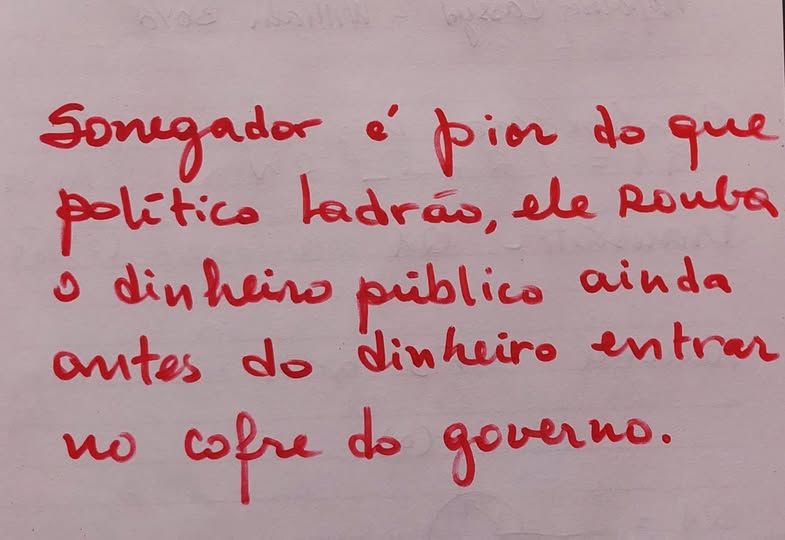 Sonegador é pior do que
político ladrão, ele rouba
o dinheiro público ainda
antes do dinheiro entrar
no cofre do governo.